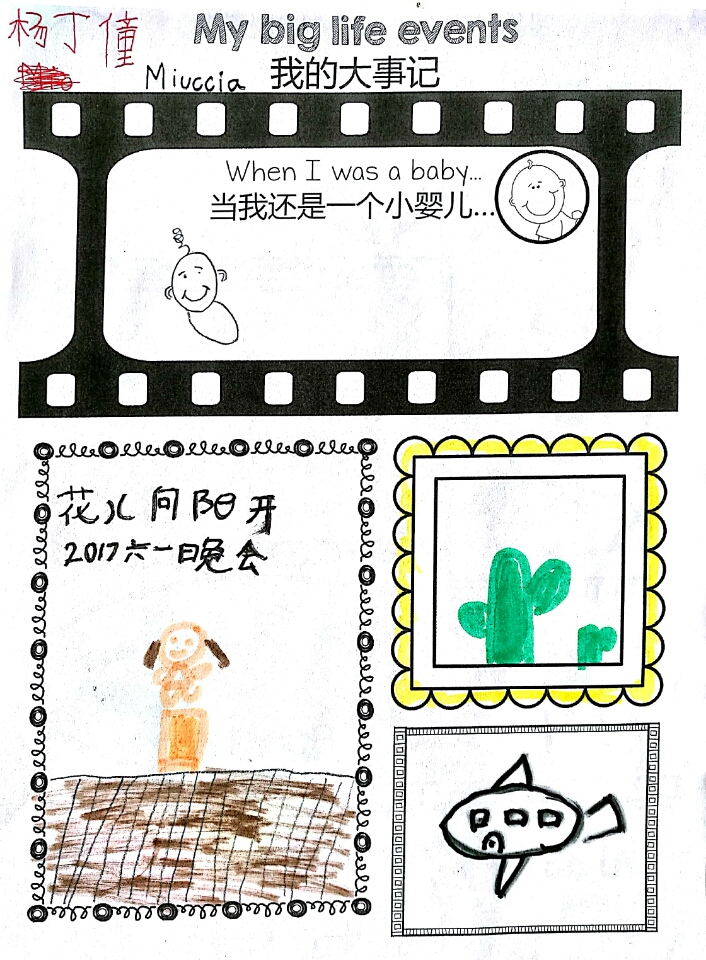 杨丁僮
My big life events
Miuccia 我的大事记
When I was a baby...
当我还是一个小婴儿...
花儿向阳开
2017六一晚会